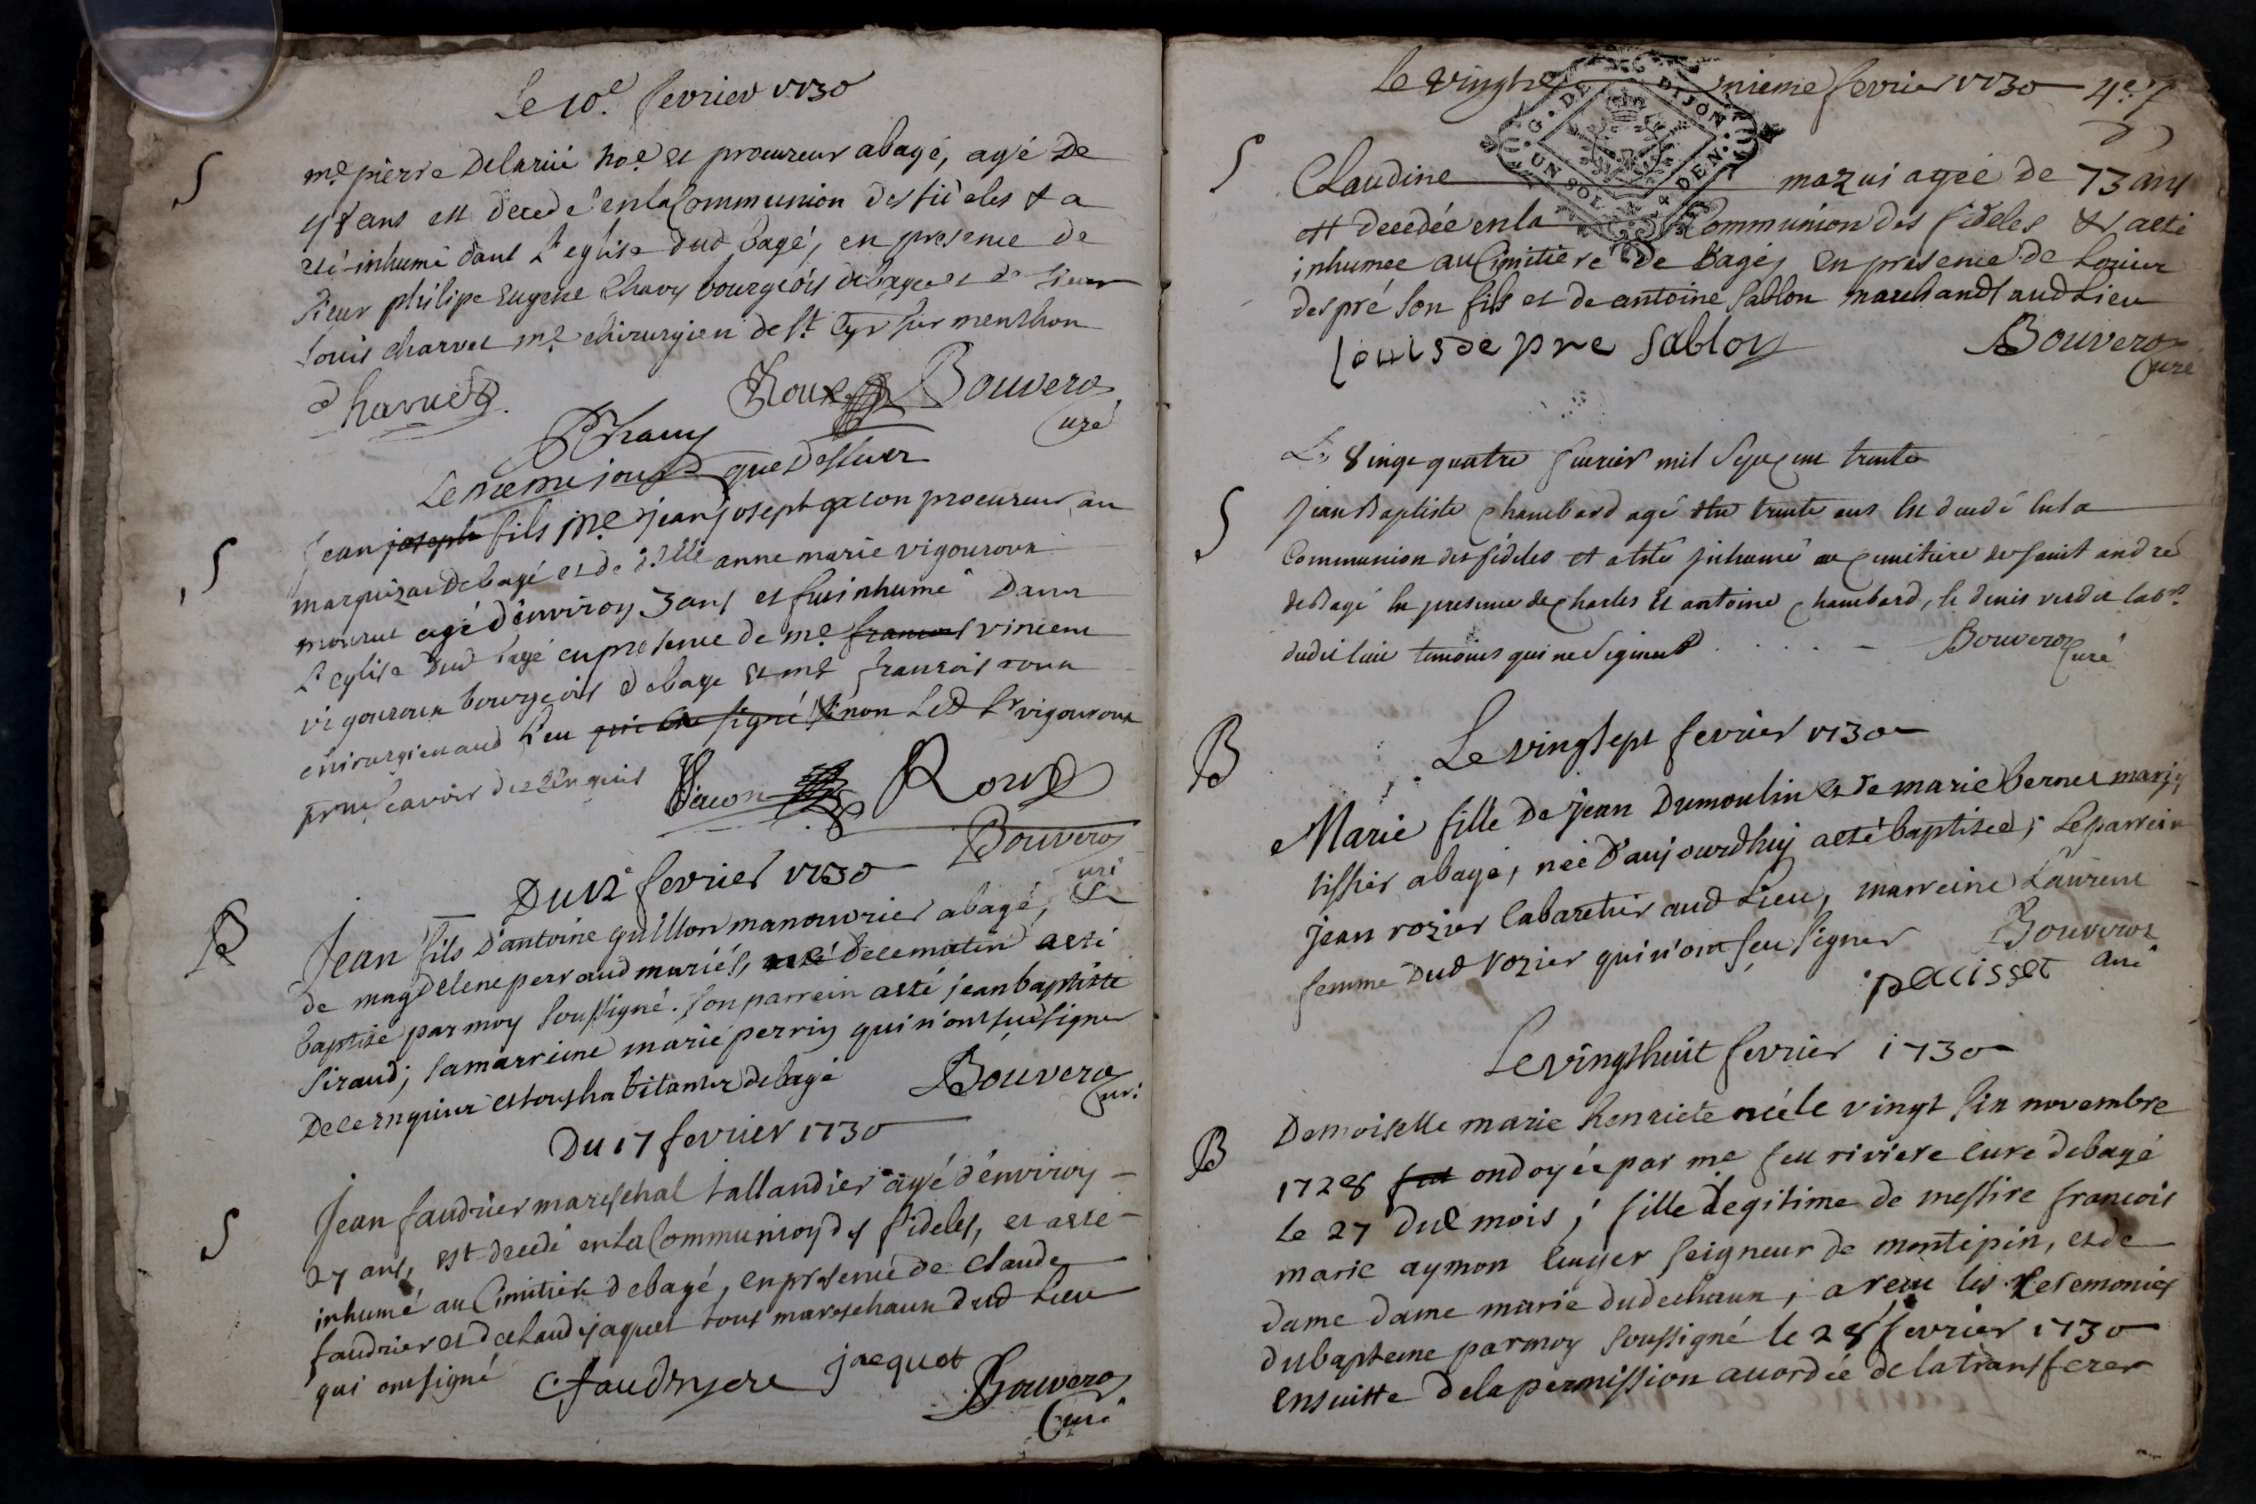 Le 10e fevrier 1730
S
me pierre Delarüe noe et procureur a bagé, agé De
48 ans est decedé en la Communion des fideles & a
eté inhumé dans L'eglise dud bagé, en presence de
sieur philipe Eugene Chavy bourgeois de bagé et de sieur
Louis charvet me chirurgien de st Cyr sur menthon
Charvet
Roux
Bouveroz
Curé
Chavy
Le meme jour que Dessus
S
Jean joseph fils me jean joseph gacon procureur au
marquizat de bagé et de dlle anne marie vigouroux
mourut agé d'environ 3 ans et fut inhumé Dans
L'eglise Dud bagé en presence de me francois vincent
vigouroux bourgeois de bage et me francois roux
chirurgien aud Lieu qui ont signé non Led sr vigouroux
pour scavoir de ce enquis
Gacon
Roux
Bouveroz
curé
Du 12e fevrier 1730
B
Jean fils D'antoine guillon manouvrier a bagé, Et
de magdelene perraud mariés, né de ce matin a eté
baptisé par moy soussigné. son parrein a eté jean baptiste
siraud; sa marreine marie perrin qui n'ont sud signer
De ce enquis et tous habitants de bagé
Bouveroz
curé
Du 17 fevrier 1730
S
Jean faudrier mareschal tallandier agé d'environ
27 ans, est decedé en la Communion des fideles, et a eté
inhumé au Cimitiere de bagé, en presence de Claude
faudrier et de claude jaquet tous mareschaux dud Lieu
qui ont signé
C faudryere
jacquet
Bouveroz
Curé
Le vingt nieme fevrier 1730
4e
G. DE DIJON
UN SOL 4 DEN.
S
Claudine mazui agée de 73 ans
est decedée en la Communion des fideles & a eté
inhumee au Cimitiere de Bagé, en presence de Louis
despré son fils et de antoine sablon marchands aud Lieu
Louis de pre
Sablon
Bouveroz
Curé
Le vingt quatre fevrier mil sept cent trente
S
Jean Baptiste Chambard agé de trente ans est decedé en la
Communion des fideles et a eté inhumé au cimitiere de saint andré
de Bagé en presence de Charles et antoine Chambard, le denis verdet labr
dudit lieu temoins qui ne signent
Bouveroz
Curé
B
Le vingt sept fevrier 1730
Marie fille De jean Dumoulin et de marie bernet mariés
tissier a bagé, née D'aujourdhuy a eté baptisée, Le parrein
jean rozier Cabaretier aud Lieu, marreine Laurent
femme Dud Rozier qui n'ont sceu signer
Bouveroz
curé
pacisset
Le vingt huit fevrier 1730
B
Demoiselle marie henriete née le vingt six novembre
1728 fut ondoyée par me feu riviere curé de bagé
le 27 dud mois, fille Legitime de messire francois
marie aymon Ecuyer seigneur de montepin, et de
dame dame marie dudechaux, a recu les ceremonies
du bapteme par moy soussigné le 28 fevrier 1730
ensuitte de la permission accordée de la transferer